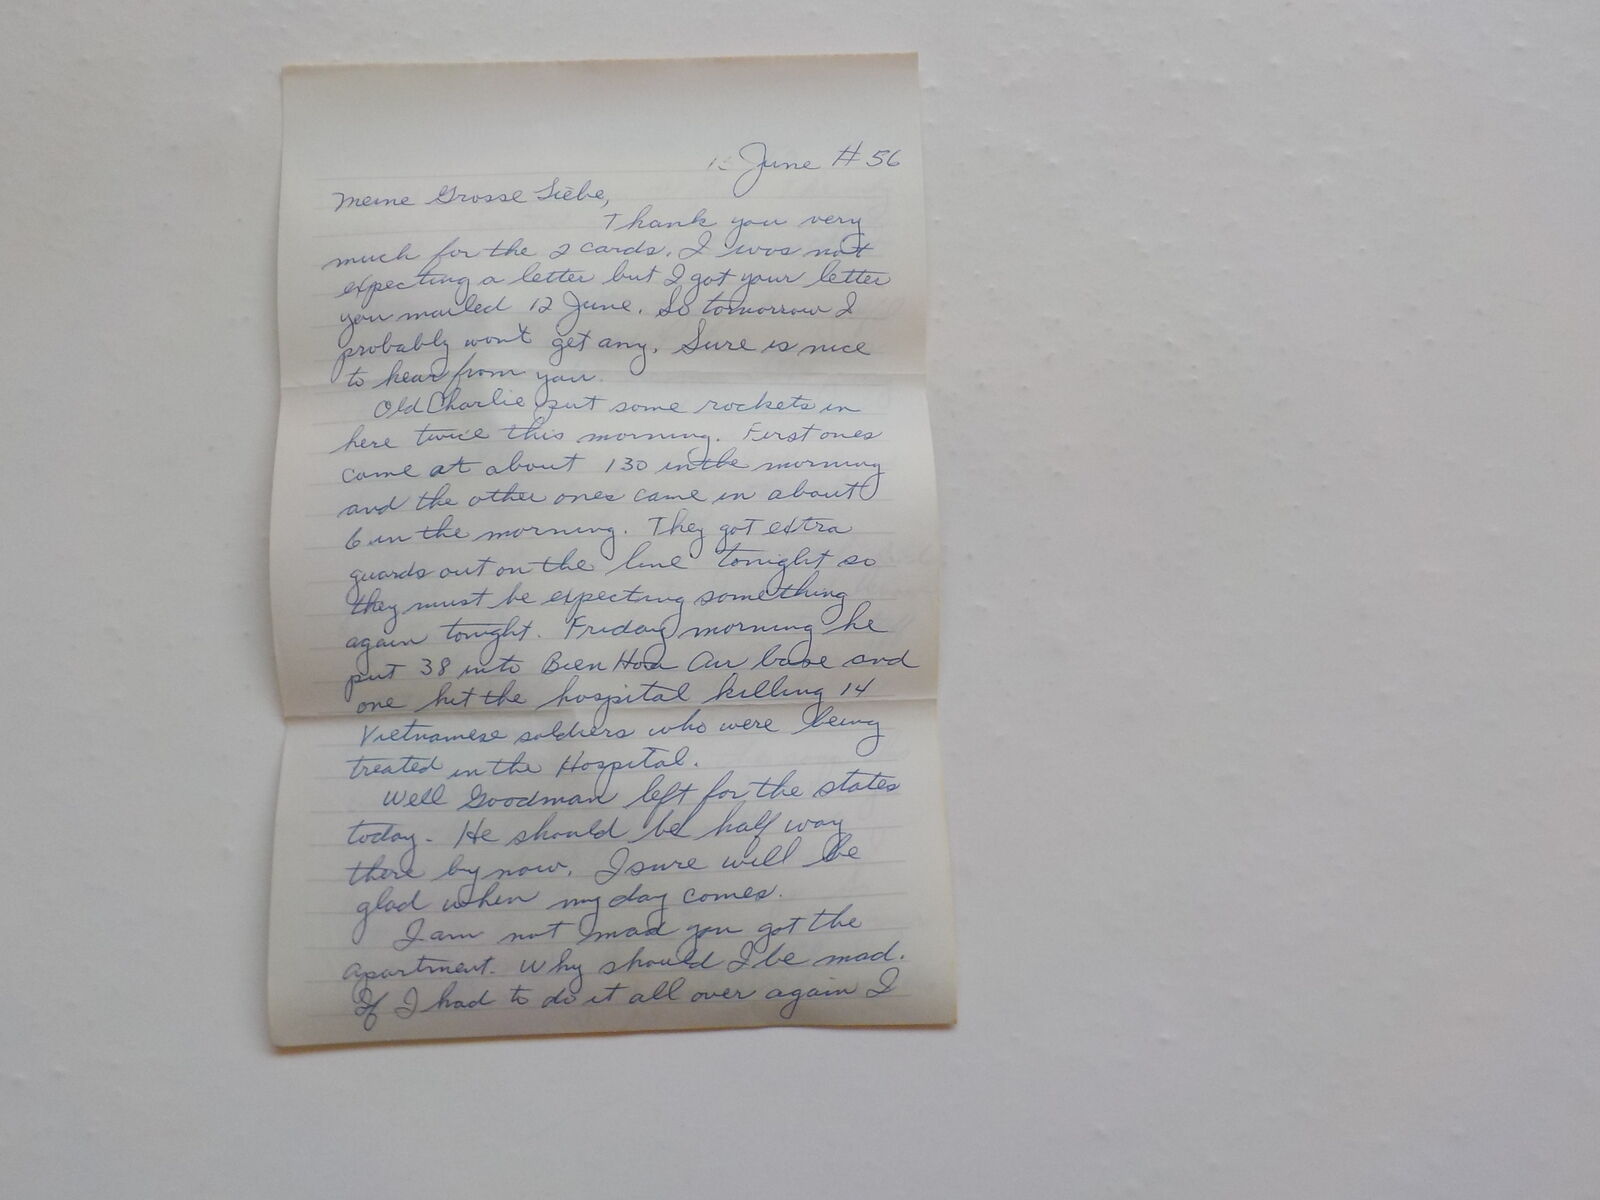 June # 56
Meine Grosse Liebe,
Thank you very
much for the 2 cards. I was not
expecting a letter but I got your letter
you mailed 12 June. So tomorrow I
probably won't get any. Sure is nice
to hear from you.
Old Charlie put some rockets in
here twice this morning. First ones
came at about 130 in the morning
and the other ones came in about
6 in the morning. They got extra
guards out on the line tonight so
they must be expecting something
again tonight. Friday morning he
put 38 into Bien Hoa Air base and
one hit the hospital killing 14
Vietnamese soldiers who were being
treated in the Hospital.
Well Goodman left for the states
today. He should be half way
there by now. I sure will be
glad when my day comes.
I am not mad you got the
apartment. Why should I be mad.
If I had to do it all over again I